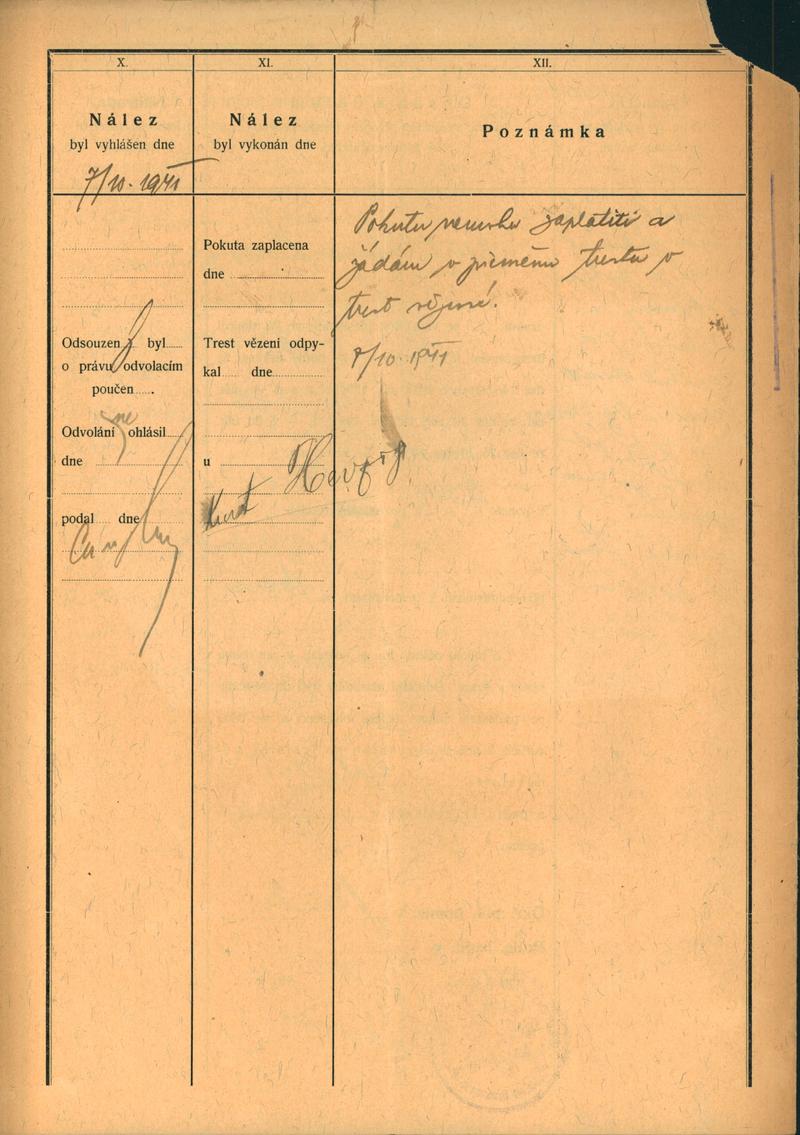 X.
Nález
byl vyhlášen dne
7/10. 1941
Odsouzen byl
o právu odvolacím
poučen
ne
Odvolání ohlásil
dne
podal dne
XI.
Nález
byl vykonán dne
Pokuta zaplacena
dne
Trest vězení odpy-
kal dne
u
Kurt Herzog
XII.
Poznámka
Pokutu nemohu zaplatiti a
žádám o přeměnu trestu v
trest vězení.
7/10. 1941